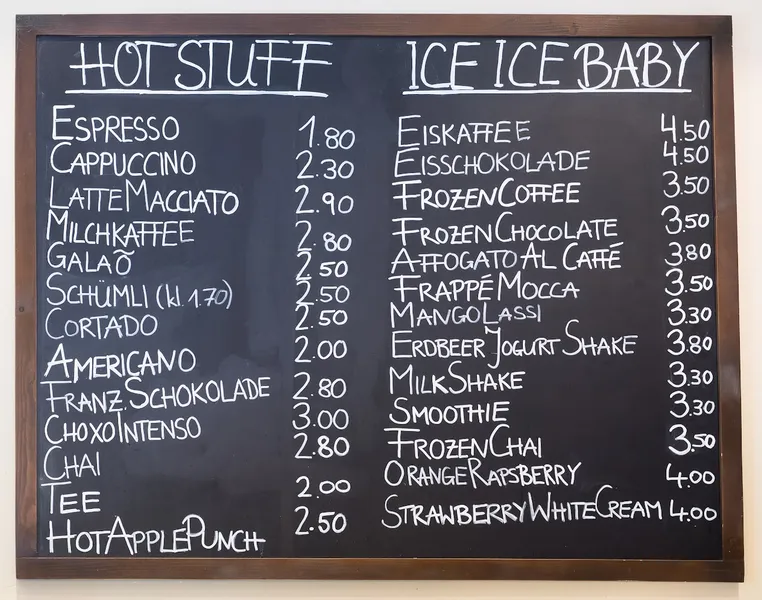 HOT STUFF
ESPRESSO 1.80
CAPPUCCINO 2.30
LATTE MACCIATO 2.90
MILCHKAFFEE 2.80
GALAÕ 2.50
SCHÜMLI (kl. 1.70) 2.50
CORTADO 2.50
AMERICANO 2.00
FRANZ.SCHOKOLADE 2.80
CHOXOINTENSO 3.00
CHAI 2.80
TEE 2.00
HOTAPPLEPUNCH 2.50
ICE ICE BABY
EISKAFFEE 4.50
EISSCHOKOLADE 4.50
FROZENCOFFEE 3.50
FROZENCHOCOLATE 3.50
AFFOGATO AL CAFFÉ 3.80
FRAPPÉ MOCCA 3.50
MANGOLASSI 3.30
ERDBEER JOGURT SHAKE 3.80
MILKSHAKE 3.30
SMOOTHIE 3.30
FROZENCHAI 3.50
ORANGERAPSBERRY 4.00
STRAWBERRYWHITECREAM 4.00